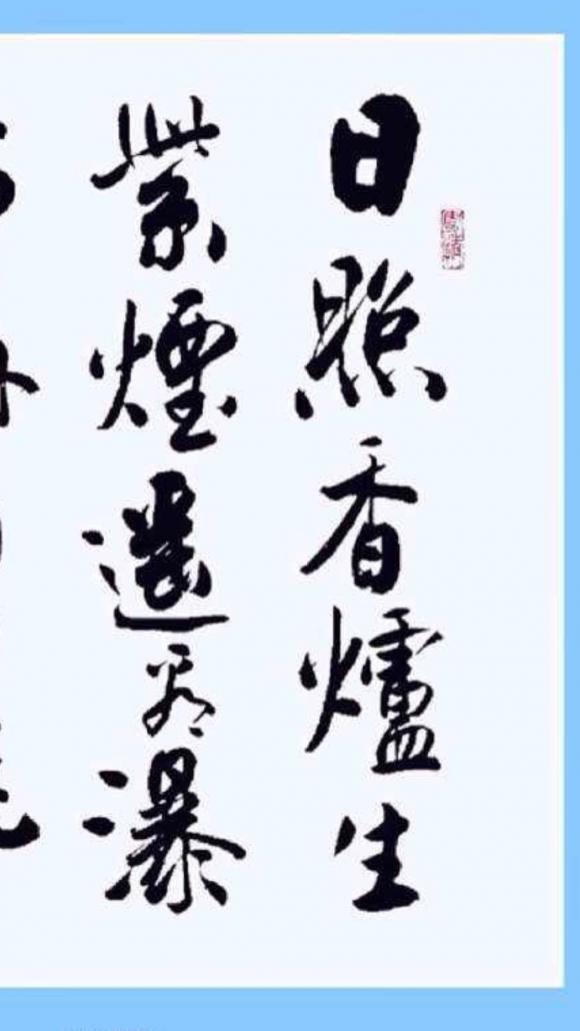 日照香爐生
紫煙遙看瀑